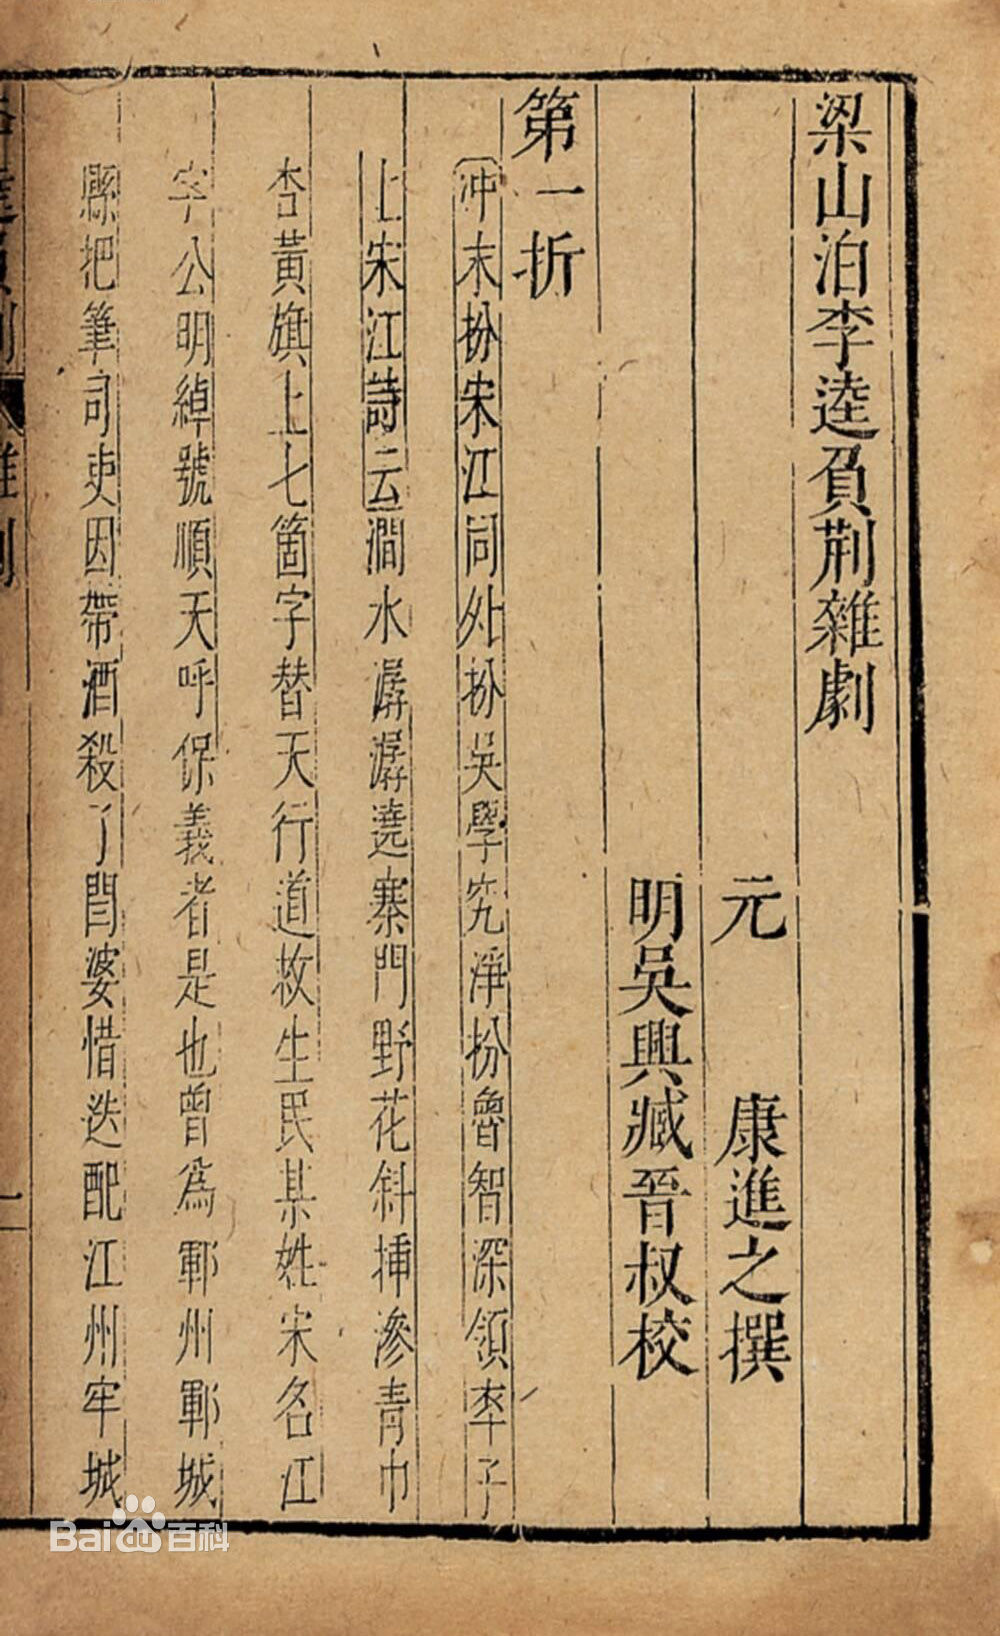 梁山泊李逵負荆雜劇
元 康進之撰
明吳興臧晉叔校
第一折
冲末扮宋江同外扮吳學究淨扮魯智深領卒子
上宋江詩云澗水潺潺遶寨門野花斜插滲青巾
杏黃旗上七箇字替天行道救生民某姓宋名江
字公明綽號順天呼保義者是也曾爲鄆州鄆城
縣把筆司吏因帶酒殺了閻婆惜迭配江州牢城
Bai百科